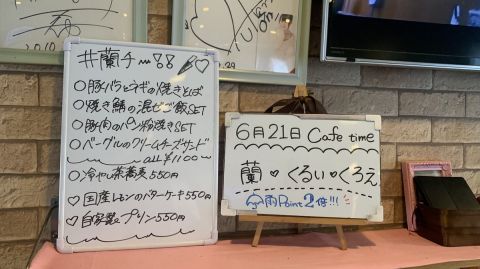 #蘭チ〰!!♡
○豚バラとネギの焼きそば
○焼き鯖の混ぜご飯SET
○豚肉のパン粉焼きSET
○ベーグルのクリームチーズサンド
all ¥1100
○冷やし茶蕎麦 550円
♡国産レモンのバターケーキ550円
♡自家製プリン550円
6月21日 Cafe time
蘭♡くるい♡くろえ
雨Point2倍!!!